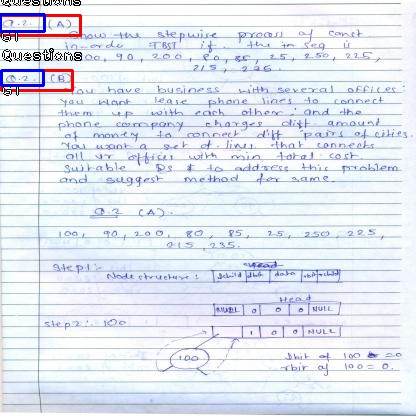 Questions
Q.2. (A)
GT
Show the stepwise process of const
in-order TBST if the in seq is
100, 90, 200, 80, 85, 25, 250, 225,
215, 235.
Questions
Q.2. (B)
GT
You have business with several offices:
You want lease phone lines to connect
them up with each other; and the
phone company charges diff amount
of money to connect diff pairs of cities.
You want a set of lines that connects
all ur offices with min total cost.
Suitable DS $ to address this problem
and suggest method for same.
Q.2 (A).
100, 90, 200, 80, 85, 25, 250, 225,
215, 235.
Step1:-
Head
Node structure: lchild lbit data rbit rchild
Head
NULL 0 0 0 NULL
step2:- 100
1 0 0 NULL
100
lbit of 100 = 0
rbit of 100 = 0.